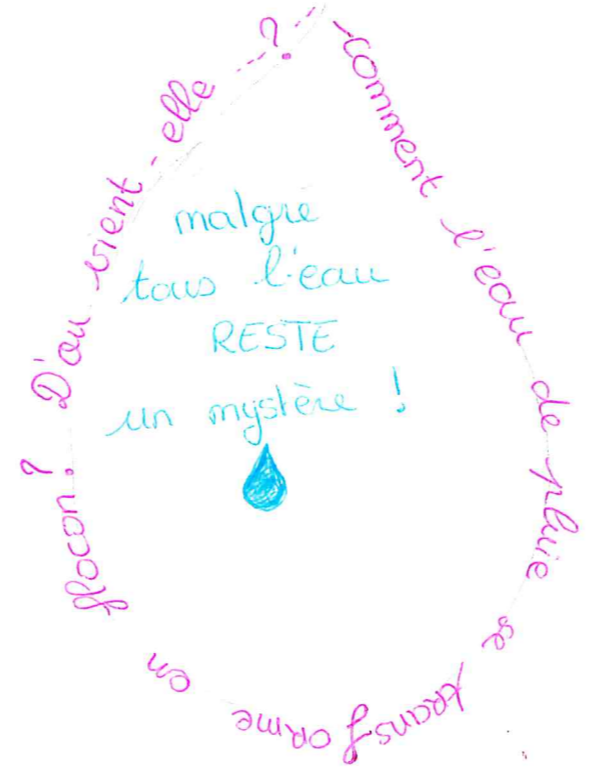 comment l'eau de pluie se transforme en flocon? D'ou vient-elle ?
malgré
tous l'eau
RESTE
un mystère !